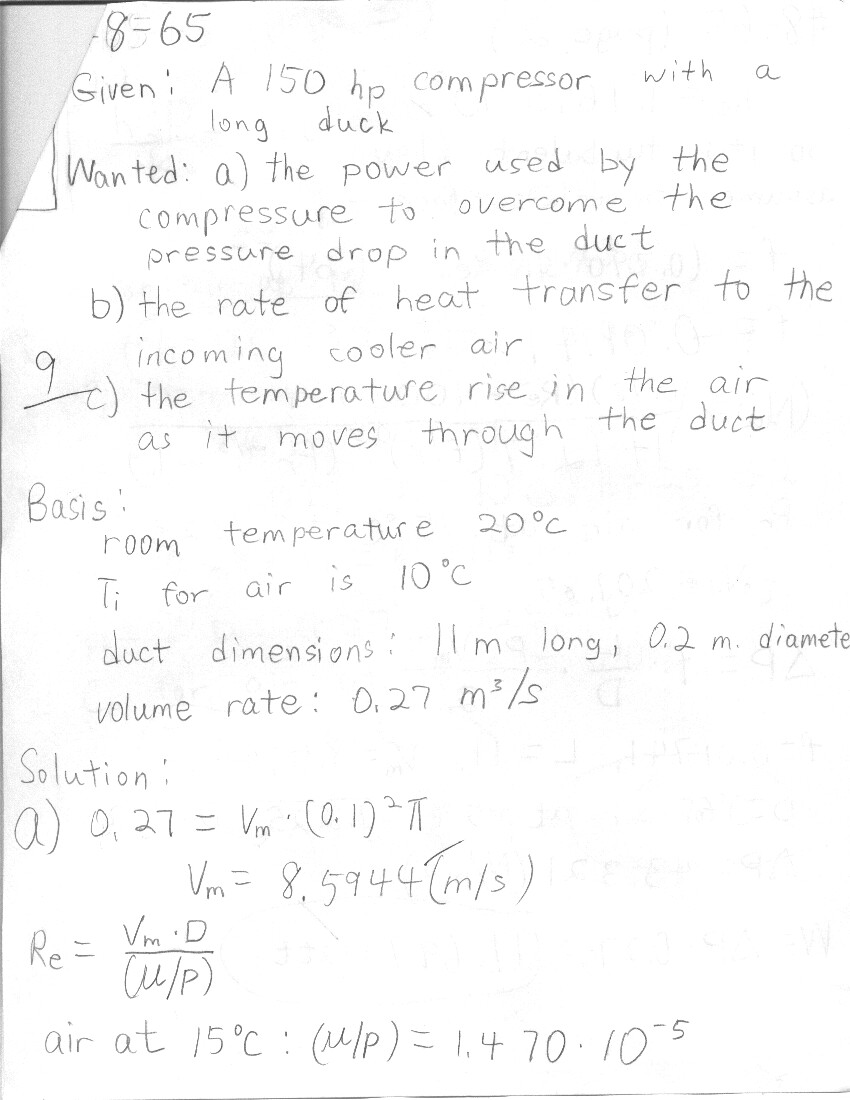 -8=65
Given: A 150 hp compressor with a
long duck
Wanted: a) the power used by the
compressure to overcome the
pressure drop in the duct
b) the rate of heat transfer to the
incoming cooler air
9
c) the temperature rise in the air
as it moves through the duct
Basis:
room temperature 20°C
Ti for air is 10°C
duct dimensions: 11m long, 0.2 m. diamete
volume rate: 0.27 m³/s
Solution:
a) 0.27 = Vm · (0.1)²π
Vm = 8.5944 (m/s)
Re = Vm · D / (μ/ρ)
air at 15°C : (μ/ρ) = 1.470 · 10⁻⁵